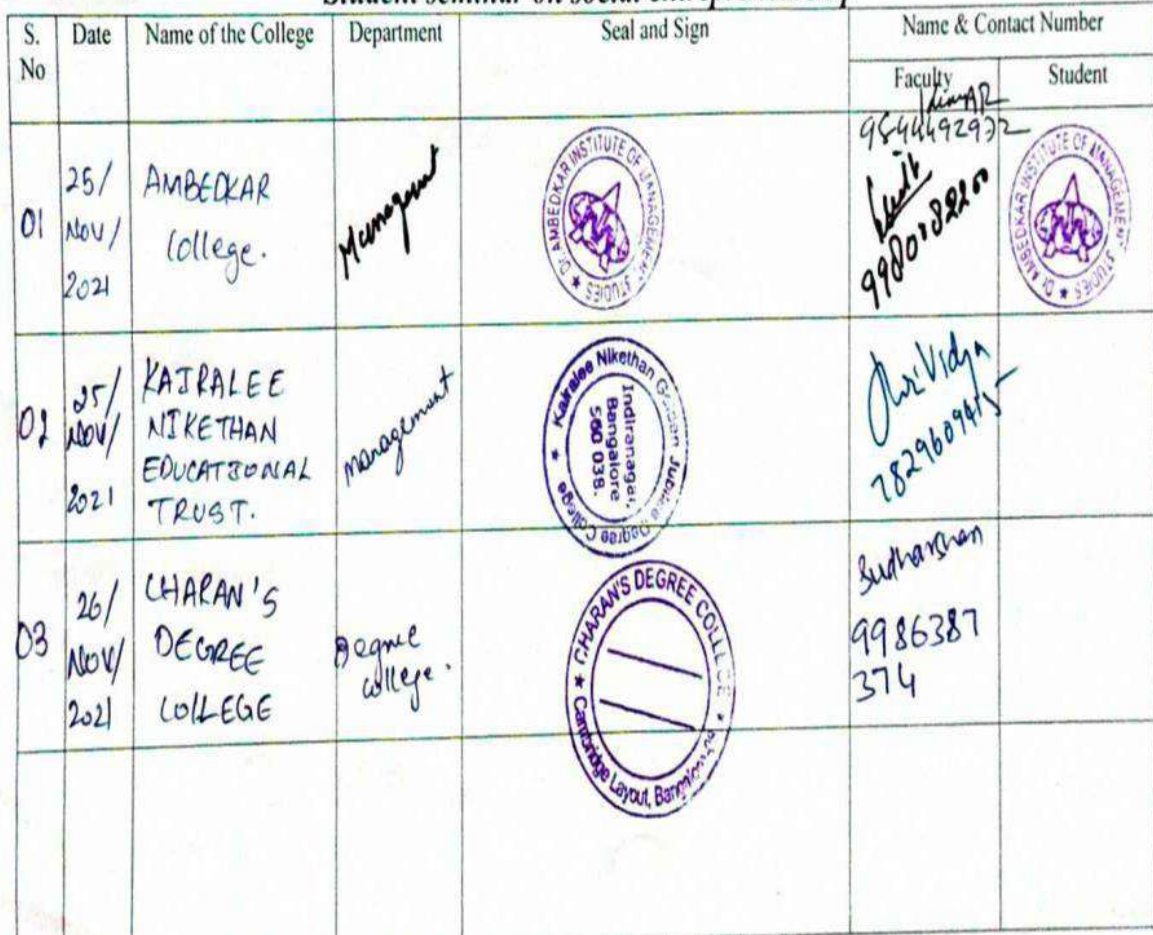 Student seminar on social entrepreneurship
S. No
Date
Name of the College
Department
Seal and Sign
Name & Contact Number
Faculty
Student
01
25/
Nov/
2021
AMBEDKAR
College.
Management
Dr. AMBEDKAR INSTITUTE OF MANAGEMENT STUDIES
9844492932
9980082200
Dr. AMBEDKAR INSTITUTE OF MANAGEMENT STUDIES
02
25/
NOV/
2021
KAIRALEE
NIKETHAN
EDUCATIONAL
TRUST.
Management
Kairalee Nikethan Golden Jubilee Degree College
Indiranagar,
Bangalore
560 038.
Vidya
7829609415
03
26/
NOV/
2021
CHARAN'S
DEGREE
COLLEGE
Degree
college.
CHARAN'S DEGREE COLLEGE
Cambridge Layout, Bangalore
Sudharshan
9986387
374